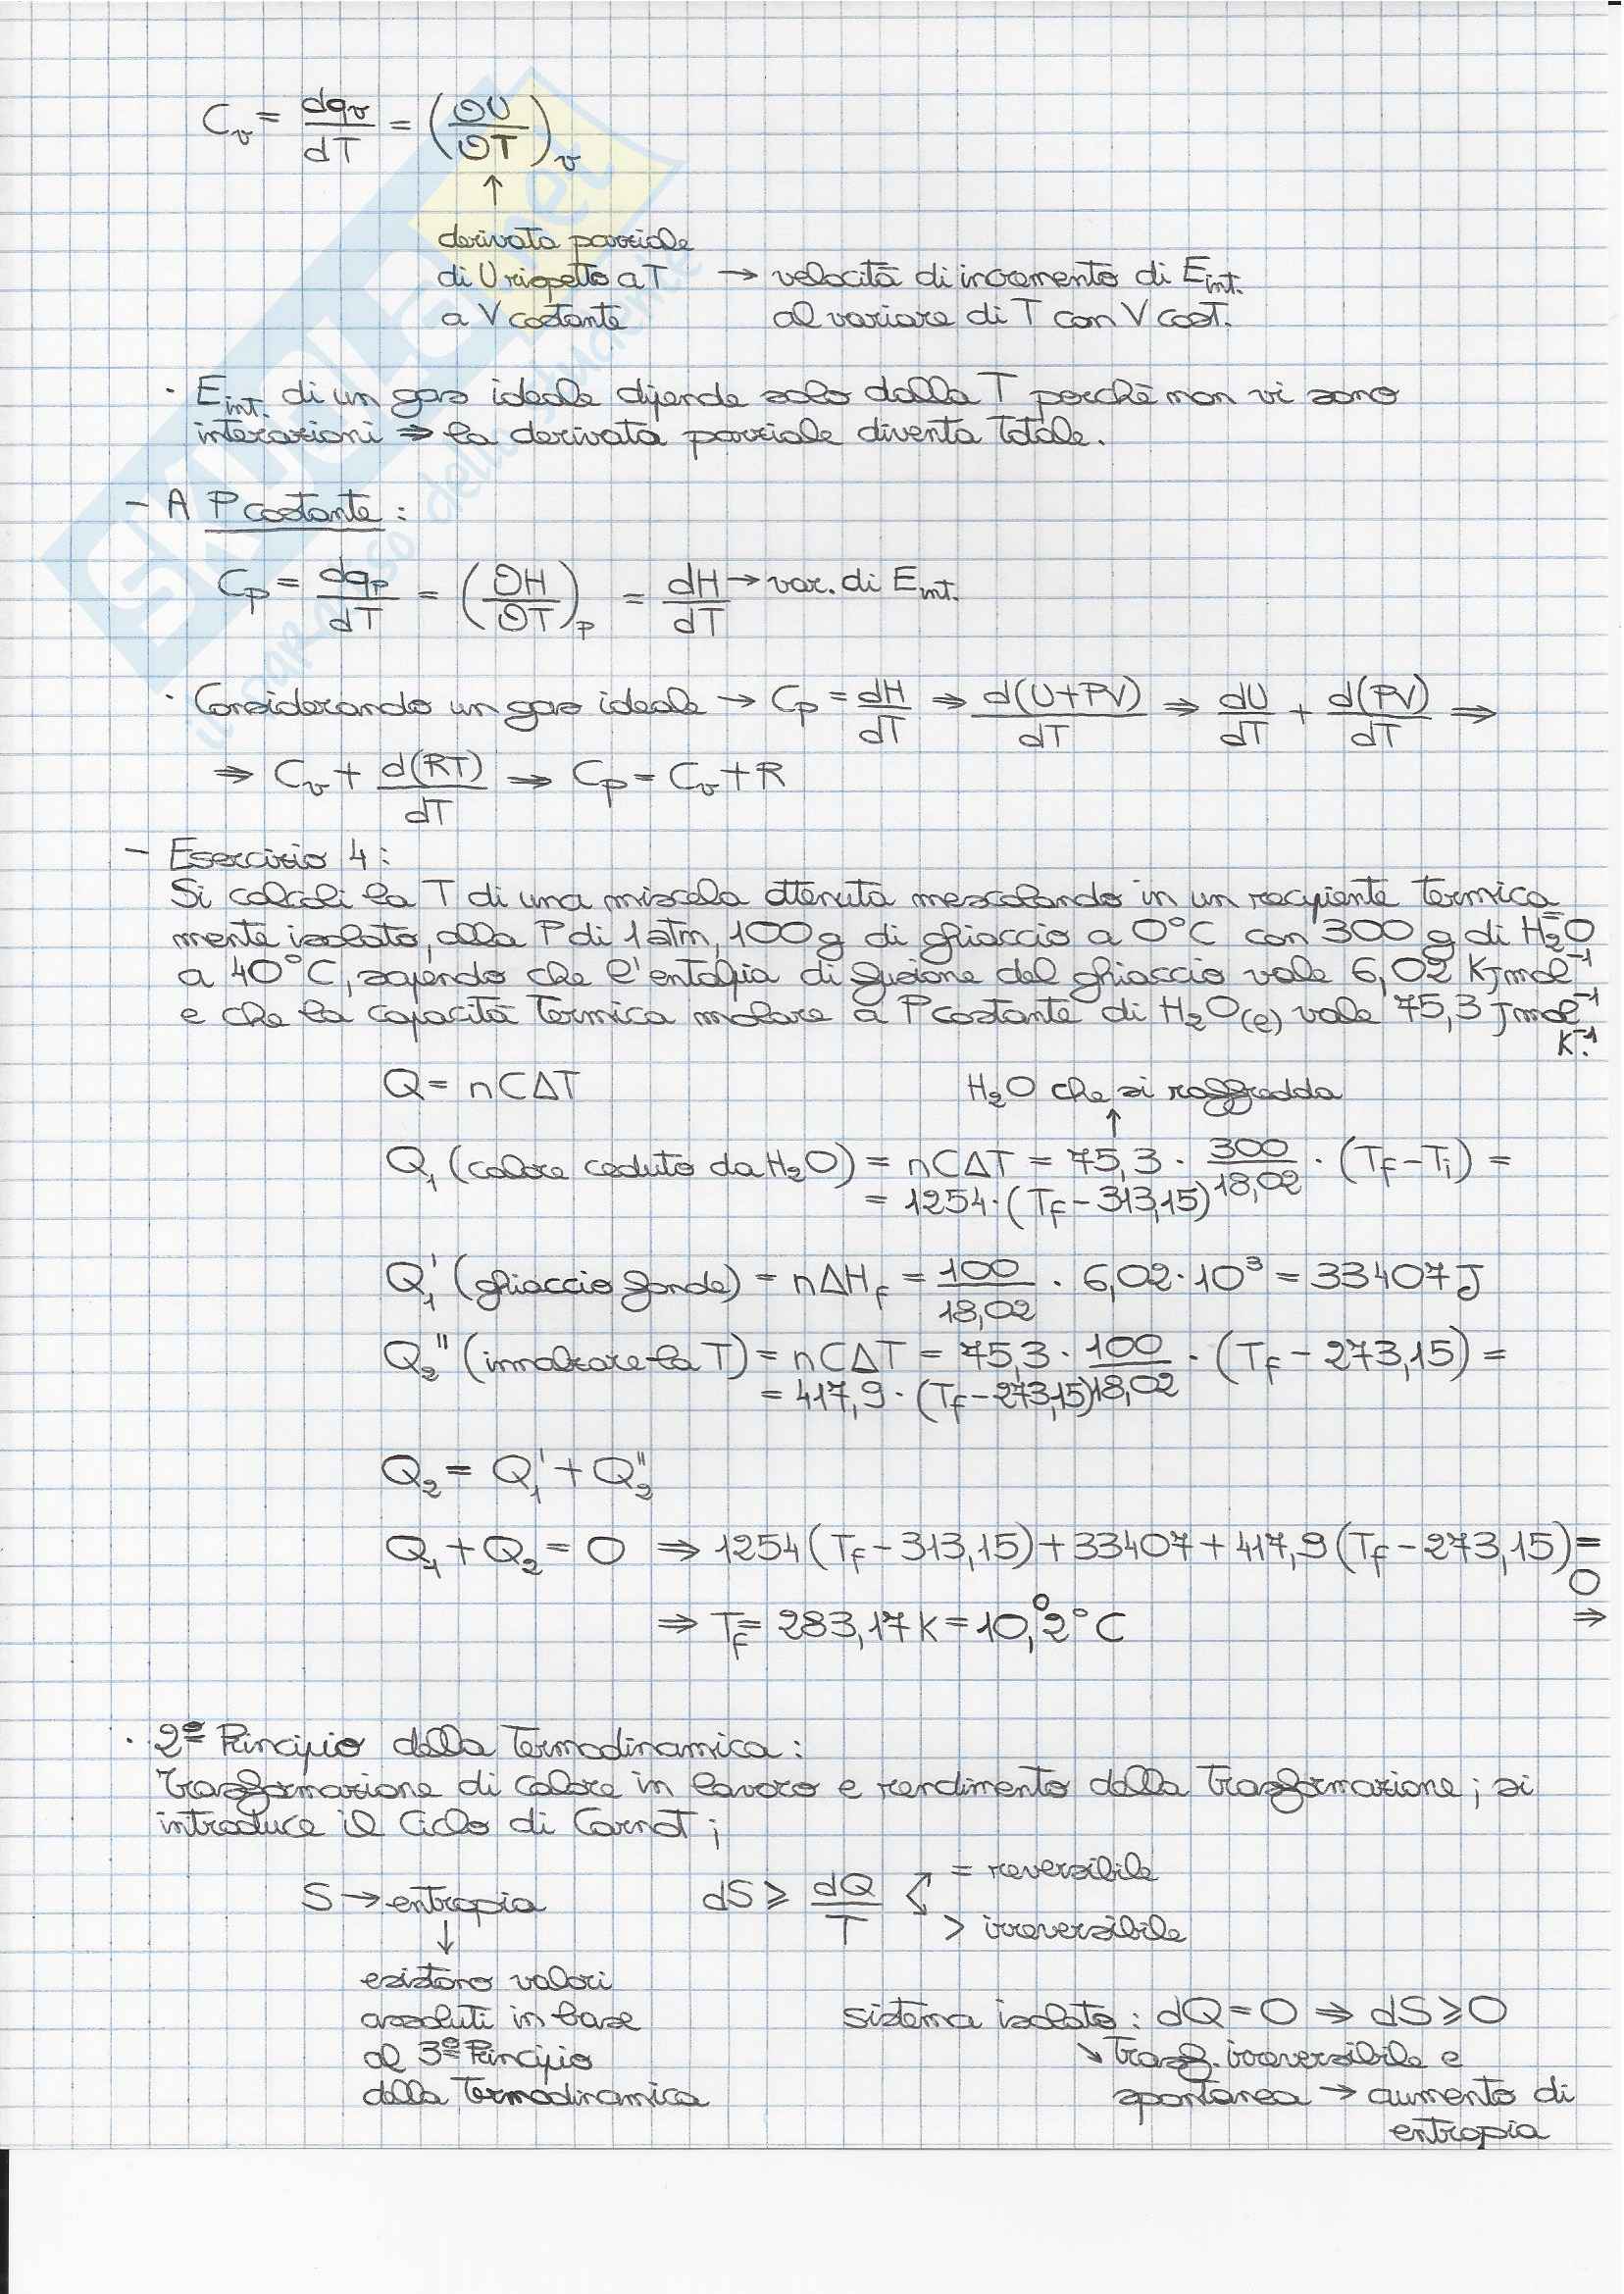 Cv = dqv/dT = (∂U/∂T)v
↑
derivata parziale
di U rispetto a T → velocità di incremento di Eint.
a V costante al variare di T con V cost.
· Eint. di un gas ideale dipende solo dalla T perchè non vi sono
interazioni ⇒ la derivata parziale diventa totale.
- A P costante:
Cp = dqp/dT = (∂H/∂T)p = dH/dT → var. di Eint.
· Considerando un gas ideale → Cp = dH/dT ⇒ d(U+PV)/dT ⇒ dU/dT + d(PV)/dT ⇒
⇒ Cv + d(RT)/dT ⇒ Cp = Cv + R
- Esercizio 4:
Si calcoli la T di una miscela ottenuta mescolando in un recipiente termica=
mente isolato, alla P di 1 atm, 100 g di ghiaccio a 0°C con 300 g di H₂O
a 40°C, sapendo che l'entalpia di fusione del ghiaccio vale 6,02 KJmol⁻¹
e che la capacità termica molare a P costante di H₂O(l) vale 75,3 Jmol⁻¹
K⁻¹.
Q = nCΔT H₂O che si raffredda
↑
Q₁ (calore ceduto da H₂O) = nCΔT = 75,3 · 300/18,02 · (Tf - Ti) =
= 1254 · (Tf - 313,15)
Q₁' (ghiaccio fonde) = nΔHf = 100/18,02 · 6,02 · 10³ = 33407 J
Q₂'' (innalzare la T) = nCΔT = 75,3 · 100/18,02 · (Tf - 273,15) =
= 417,9 · (Tf - 273,15)
Q₂ = Q₁' + Q₂''
Q₁ + Q₂ = 0 ⇒ 1254 (Tf - 313,15) + 33407 + 417,9 (Tf - 273,15) =
0
⇒
⇒ Tf = 283,17 K = 10,02°C
· 2º Principio della Termodinamica:
Trasformazione di calore in lavoro e rendimento della trasformazione; si
introduce il Ciclo di Carnot;
S → entropia dS ≥ dQ/T = reversibile
↓ > irreversibile
esistono valori
assoluti in base sistema isolato: dQ = 0 ⇒ dS ≥ 0
al 3º Principio ↘ trasf. irreversibile e
della Termodinamica spontanea → aumento di
entropia